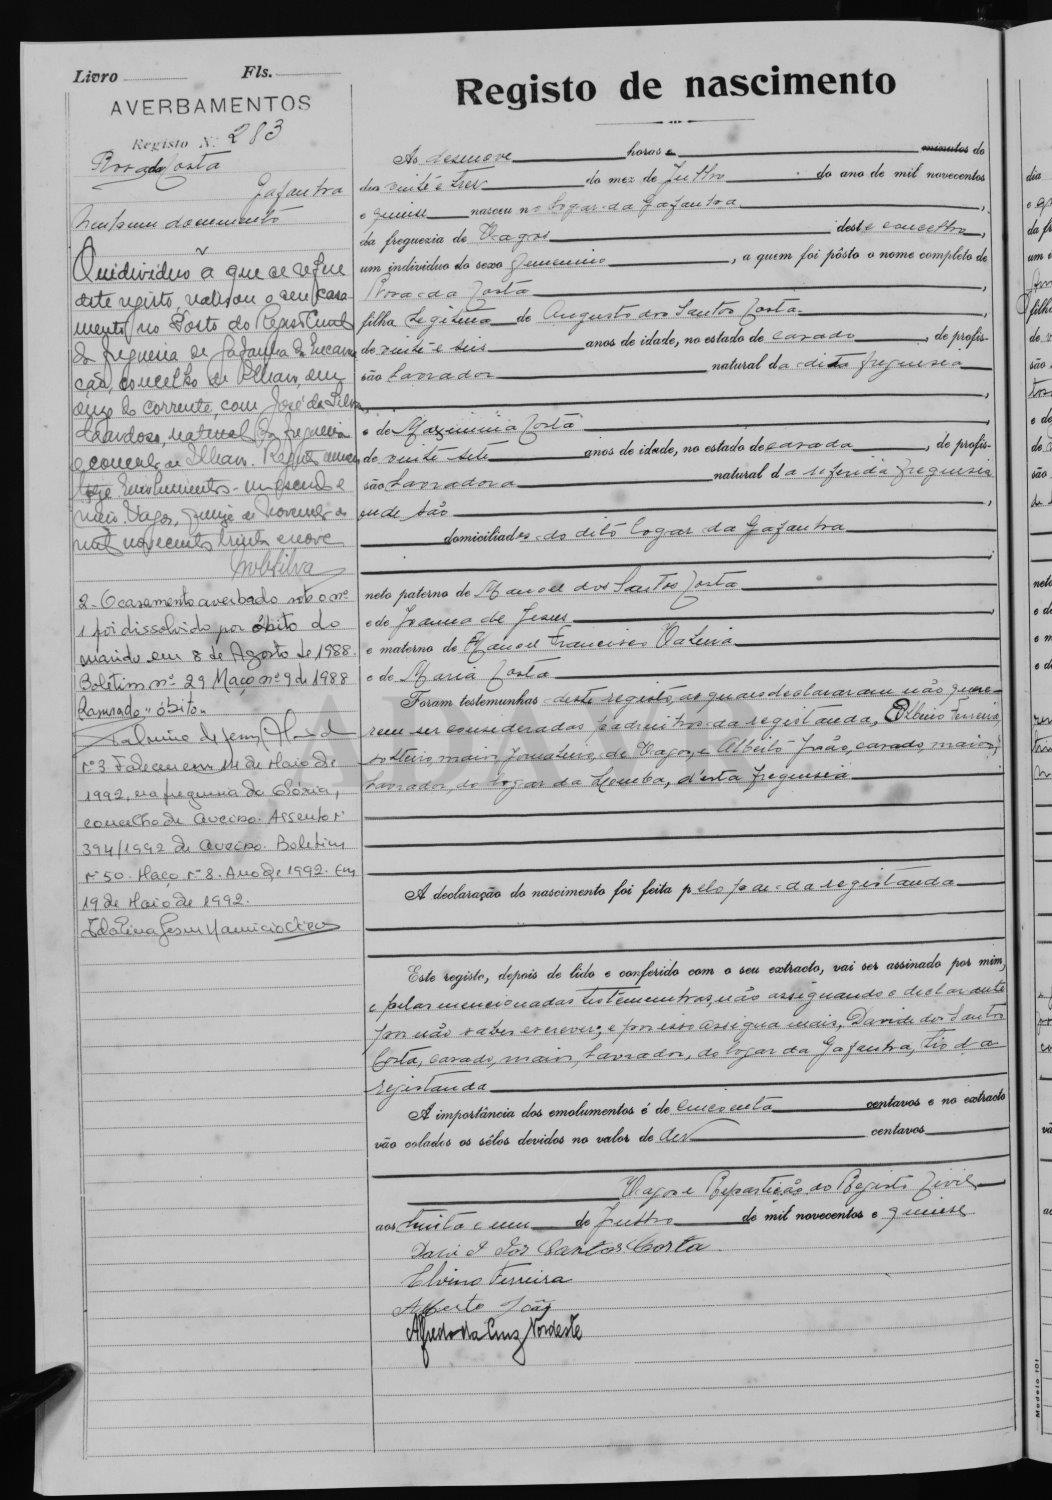 Livro Fls.
AVERBAMENTOS
Registo N.º 283
Rosa da Costa
Gafanha
Nenhum documento
O individuo a que se refere
este registo, realisou o seu casa
mento no Posto do Registo Civil
da freguesia de Gafanha da Encarna
ção, concelho de Ilhavo, em
onze do corrente, com José da Silva
Loardoso, natural da freguesia
e concelho de Ilhavo.
Emolumentos - um escudo e
meio. Vagos, quinze de Novembro de
mil novecentos trinta e nove
Silva
2 - O casamento averbado sob o nº
1 foi dissolvido por óbito do
marido em 8 de Agosto de 1988.
Boletim nº 29 Maço nº 9 de 1988
Rasurado "óbito"
Nº 3 Faleceu em 14 de Maio de
1992, na freguesia da Glória,
concelho de Aveiro. Assento nº
394/1992 de Aveiro. Boletim
nº 50. Maço nº 8. Ano de 1992. Em
19 de Maio de 1992.
Registo de nascimento
Ás desenove horas e minutos do
dia vinte e tres do mez de Julho do ano de mil novecentos
e quinse nasceu no logar da Gafanha
da freguezia de Vagos deste concelho,
um individuo do sexo femenino, a quem foi pôsto o nome completo de
Rosa da Costa
filha legitima de Augusto dos Santos Costa
de vinte e seis anos de idade, no estado de casado, de profis-
são lavrador natural da dita freguesia
e de Maximina Costa
de vinte sete anos de idade, no estado de casada, de profis-
são lavradora natural da referida freguesia
onde são
domiciliados no dito logar da Gafanha
neto paterno de Manoel dos Santos Costa
e de Joanna de Jesus
e materno de Manoel Francisco
e de Maria Costa
Foram testemunhas deste registo, as quaes declararam não quere-
rem ser consideradas padrinhos da registanda, Elbino Ferreira,
solteiro, maior, jornaleiro, de Vagos, e Alberto João, casado, maior,
lavrador, do logar da Lomba, d'esta freguesia
A declaração do nascimento foi feita pelo pae da registanda
Este registo, depois de lido e conferido com o seu extracto, vai ser assinado por mim,
e pelas mencionadas testemunhas, não assignando o declarante
por não saber escrever; e por isso assigna mais, David dos Santos
Costa, casado, maior, lavrador, do logar da Gafanha, tio da
registanda
A importância dos emolumentos é de cincoenta centavos e no extracto
vão colados os sêlos devidos no valor de dez centavos
Vagos e Repartição do Registo Civil
aos trinta e um de Julho de mil novecentos e quinse
David dos Santos Costa
Elvino Ferreira
Alberto João
Alfredo da Cruz Nordeste
Modelo 101